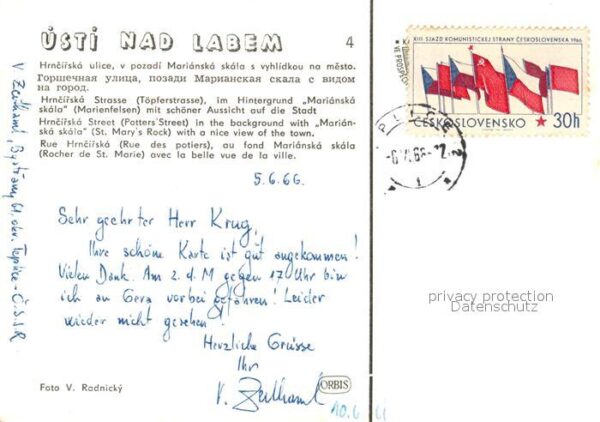 ÚSTÍ NAD LABEM 4
Hrnčířská ulice, v pozadí Mariánská skála s vyhlídkou na město.
Горшечная улица, позади Марианская скала с видом
на город.
Hrnčířská Strasse (Töpferstrasse), im Hintergrund „Mariánská
skála" (Marienfelsen) mit schöner Aussicht auf die Stadt
Hrnčířská Street (Potters'Street) in the background with „Marián-
ská skála" (St. Mary's Rock) with a nice view of the town.
Rue Hrnčířská (Rue des potiers), au fond Mariánská skála
(Rocher de St. Marie) avec la belle vue de la ville.
5.6.66.
Sehr geehrter Herr Krug,
Ihre schöne Karte ist gut angekommen!
Vielen Dank. Am 2. d. M gegen 17 Uhr bin
ich an Gera vorbei gefahren! Leider
wieder nicht gesehen!
Herzliche Grüsse
Ihr
V.
Foto V. Radnický
ORBIS
V. Bystřany 61, okr. Teplice - Č.S.S.R
XIII. SJEZD KOMUNISTICKÉ STRANY ČESKOSLOVENSKA 1966
ČESKOSLOVENSKO 30h
privacy protection
Datenschutz